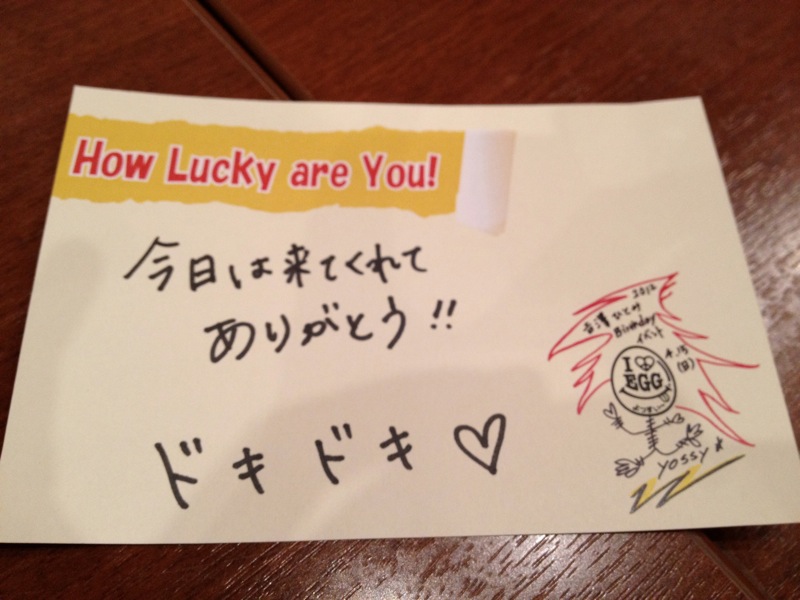 How Lucky are You!
今日は来てくれて
ありがとう!!
ドキドキ♡
2012
吉澤ひとみ
Birthday
イベント
4.15
(日)
I ♡
EGG
YOSSY★